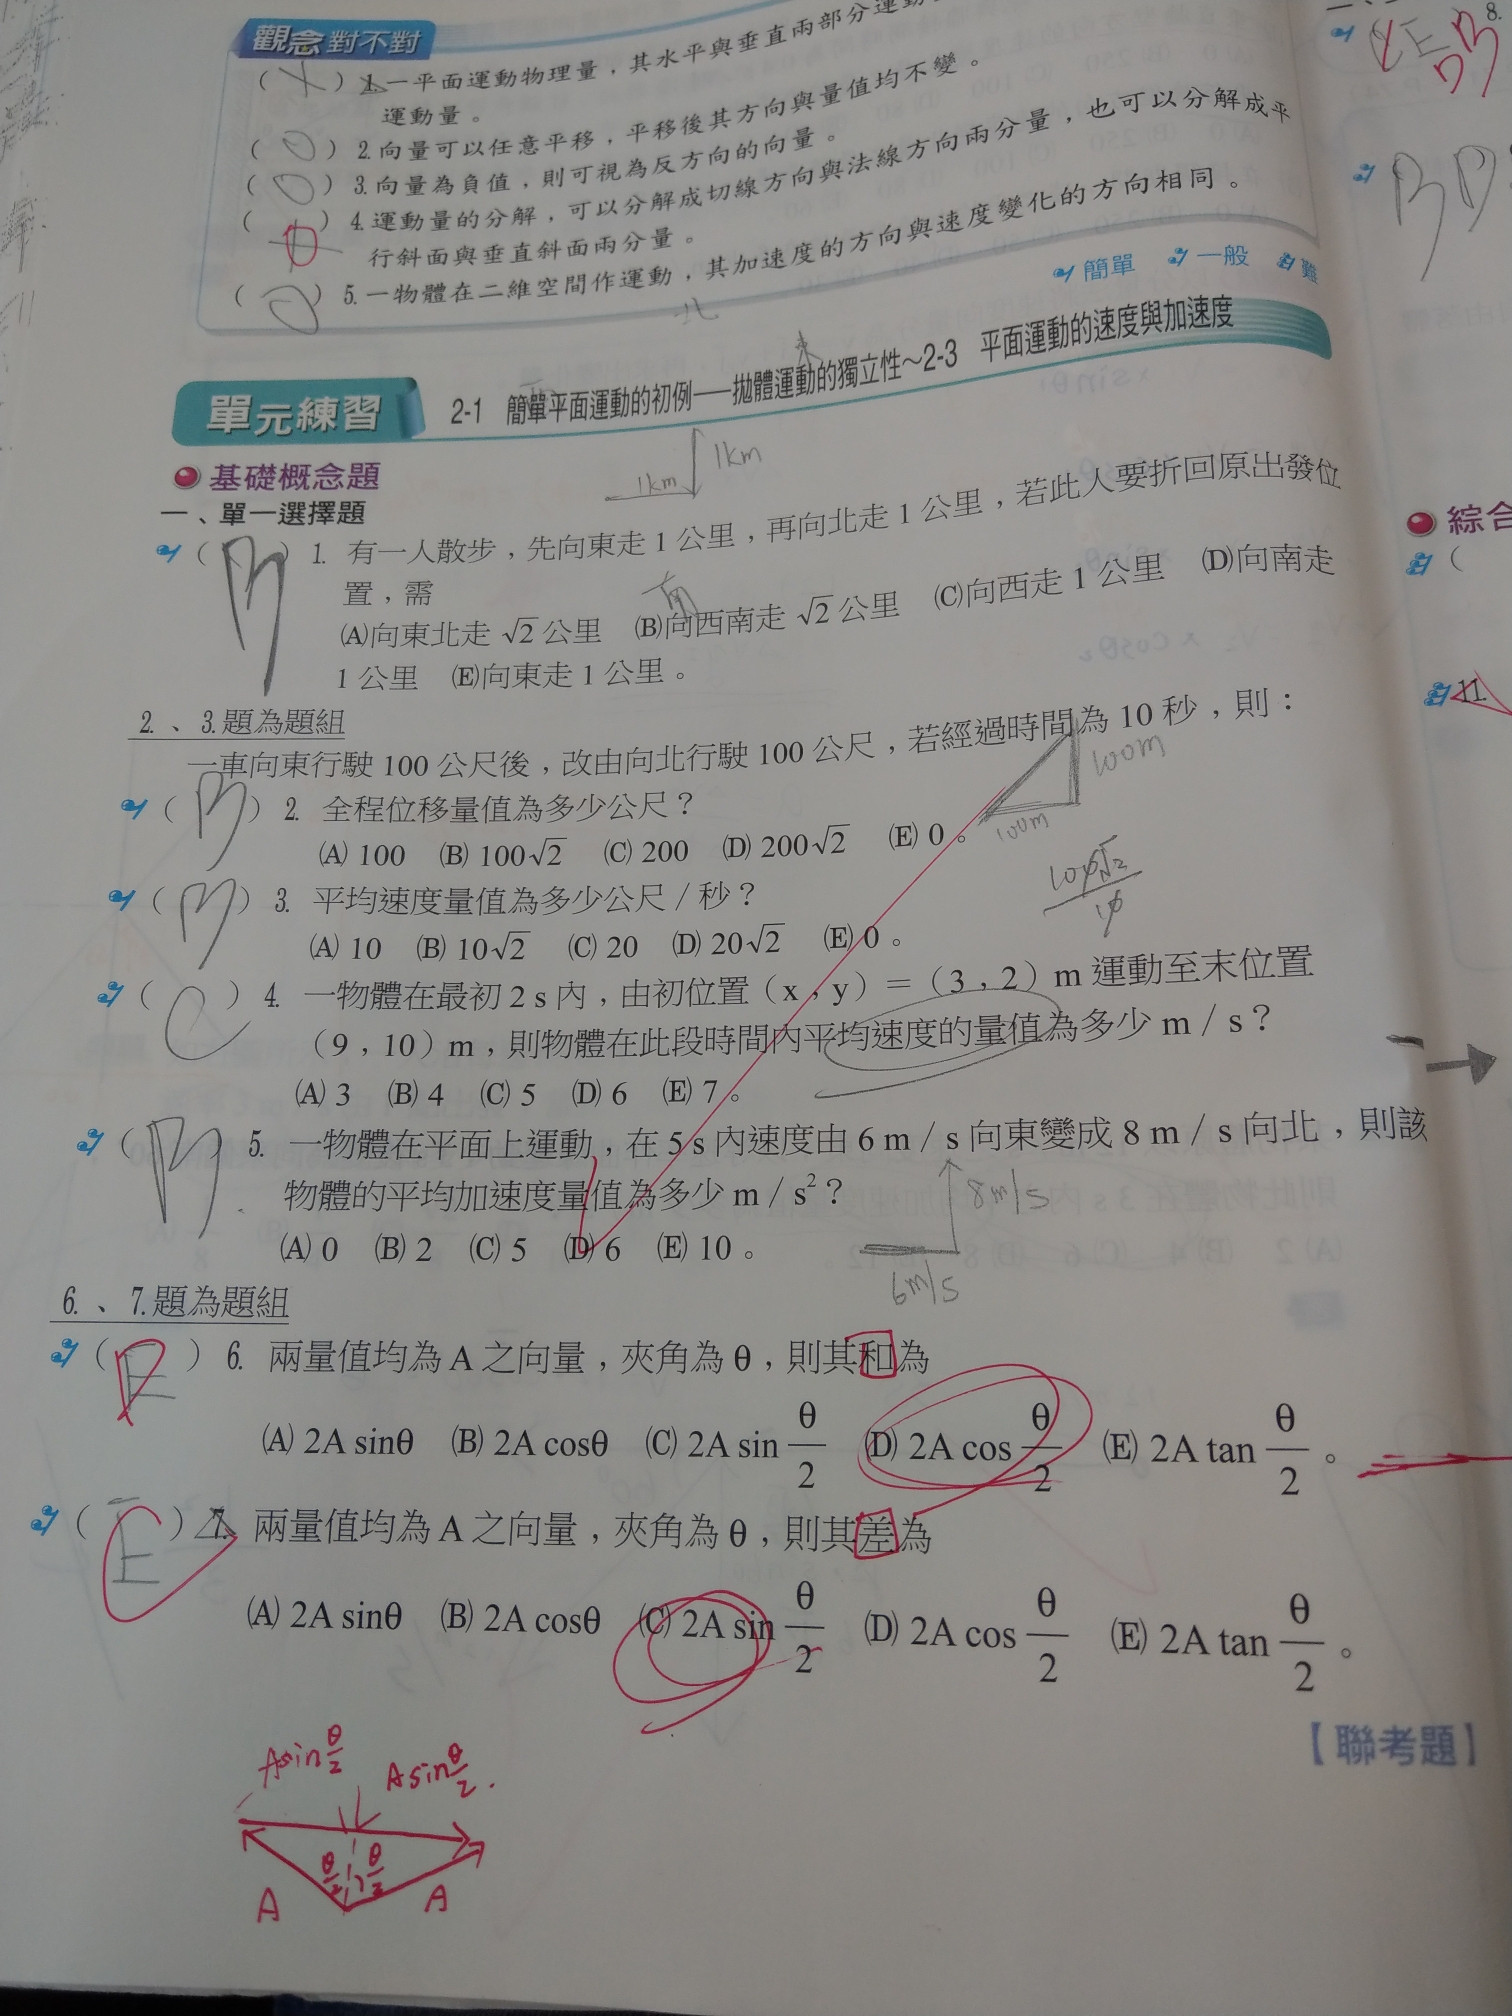 觀念對不對
( ) 1.一平面運動物理量，其水平與垂直兩部分運動
運動量。
( ) 2.向量可以任意平移，平移後其方向與量值均不變。
( ) 3.向量為負值，則可視為反方向的向量。
( ) 4.運動量的分解，可以分解成切線方向與法線方向兩分量，也可以分解成平
行斜面與垂直斜面兩分量。
( ) 5.一物體在二維空間作運動，其加速度的方向與速度變化的方向相同。
簡單 一般 難
北
東
西
南
單元練習 2-1 簡單平面運動的初例——拋體運動的獨立性～2-3 平面運動的速度與加速度
基礎概念題
一、單一選擇題
1km 1km
(B) 1. 有一人散步，先向東走 1 公里，再向北走 1 公里，若此人要折回原出發位
置，需
(A)向東北走 √2 公里 (B)向西南走 √2 公里 (C)向西走 1 公里 (D)向南走
1 公里 (E)向東走 1 公里。
2.、3.題為題組
一車向東行駛 100 公尺後，改由向北行駛 100 公尺，若經過時間為 10 秒，則：
100m
100m
(B) 2. 全程位移量值為多少公尺？
(A) 100 (B) 100√2 (C) 200 (D) 200√2 (E) 0。
100√2
10
(B) 3. 平均速度量值為多少公尺／秒？
(A) 10 (B) 10√2 (C) 20 (D) 20√2 (E) 0。
(C) 4. 一物體在最初 2 s 內，由初位置（x，y）＝（3，2）m 運動至末位置
（9，10）m，則物體在此段時間內平均速度的量值為多少 m／s？
(A) 3 (B) 4 (C) 5 (D) 6 (E) 7。
(B) 5. 一物體在平面上運動，在 5 s 內速度由 6 m／s 向東變成 8 m／s 向北，則該
物體的平均加速度量值為多少 m／s²？
8m/s
6m/s
(A) 0 (B) 2 (C) 5 (D) 6 (E) 10。
6.、7.題為題組
(E) 6. 兩量值均為 A 之向量，夾角為 θ，則其和為
(A) 2A sinθ (B) 2A cosθ (C) 2A sin θ/2 (D) 2A cos θ/2 (E) 2A tan θ/2。
(E) 7. 兩量值均為 A 之向量，夾角為 θ，則其差為
(A) 2A sinθ (B) 2A cosθ (C) 2A sin θ/2 (D) 2A cos θ/2 (E) 2A tan θ/2。
【聯考題】
Asin θ/2 Asin θ/2.
θ/2 θ/2
A A
8.
綜合
11.